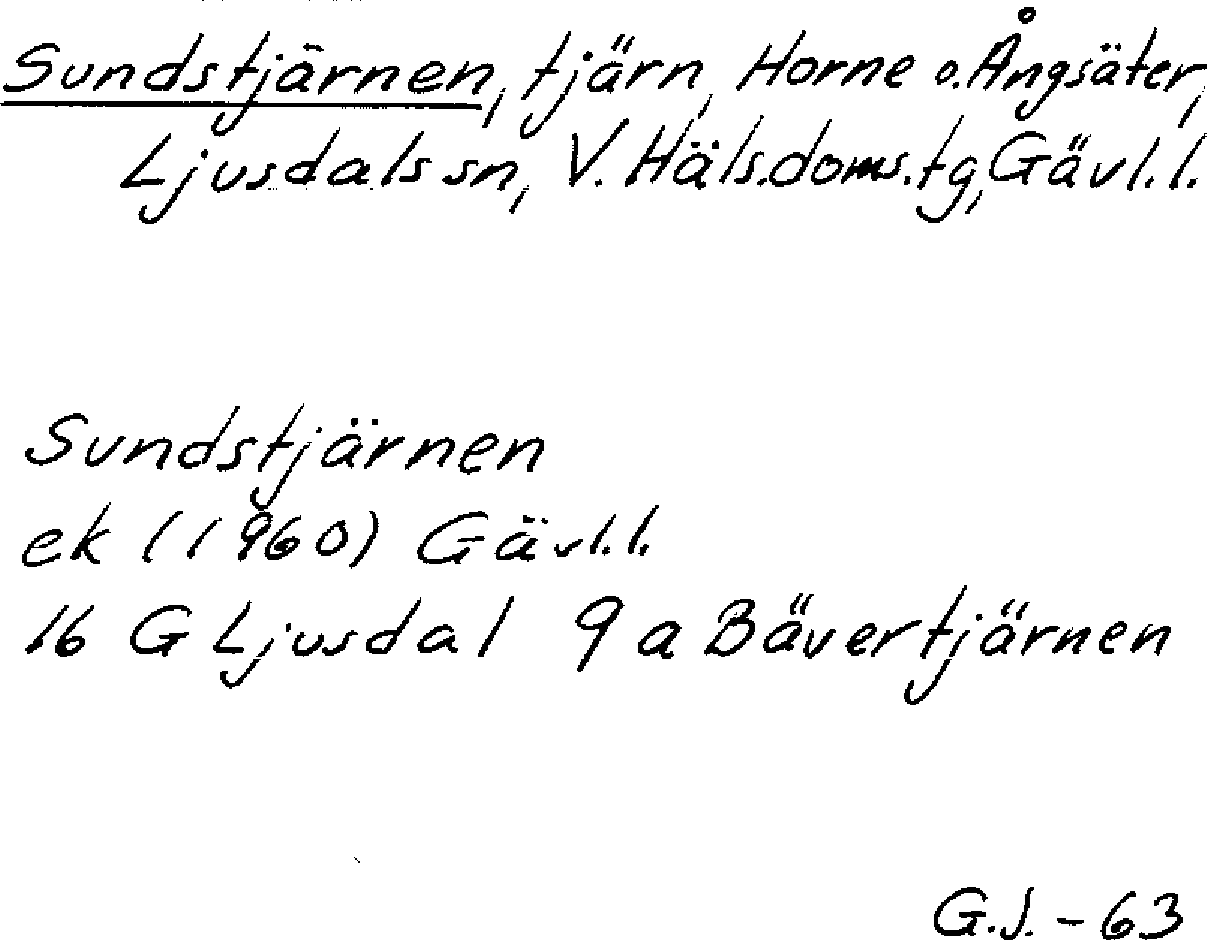 Sundstjärnen, tjärn, Horne o. Ångsäter,
Ljusdals sn, V. Häls. doms. tg, Gävl. l.
Sundstjärnen
ek (1960) Gävl. l.
16 G Ljusdal 9 a Bävertjärnen
G.J. - 63